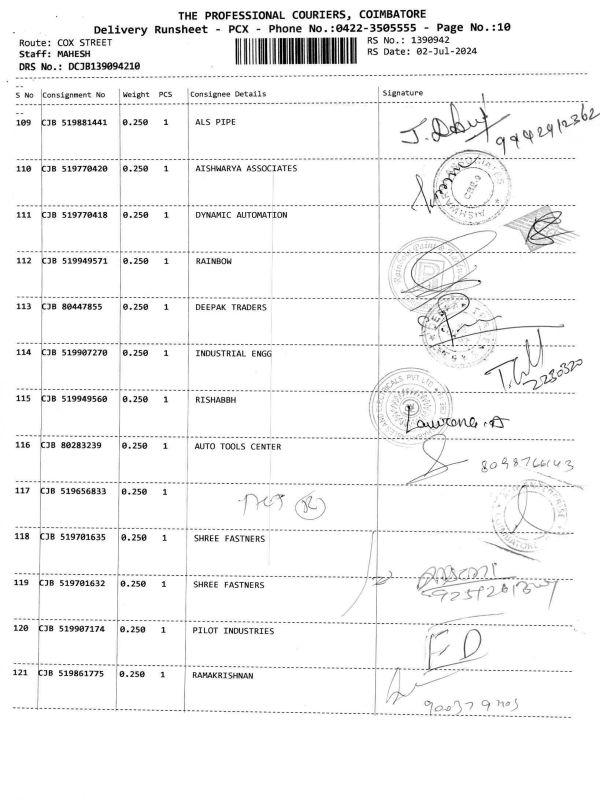 THE PROFESSIONAL COURIERS, COIMBATORE
Delivery Runsheet - PCX - Phone No.:0422-3505555 - Page No.:10
Route: COX STREET
RS No.: 1390942
Staff: MAHESH
RS Date: 02-Jul-2024
DRS No.: DCJB139094210
S No Consignment No Weight PCS Consignee Details Signature
109 CJB 519881441 0.250 1 ALS PIPE
9442912362
110 CJB 519770420 0.250 1 AISHWARYA ASSOCIATES
111 CJB 519770418 0.250 1 DYNAMIC AUTOMATION
112 CJB 519949571 0.250 1 RAINBOW
113 CJB 80447855 0.250 1 DEEPAK TRADERS
114 CJB 519907270 0.250 1 INDUSTRIAL ENGG
2230320
115 CJB 519949560 0.250 1 RISHABBH
Lawrence.A
116 CJB 80283239 0.250 1 AUTO TOOLS CENTER
117 CJB 519656833 0.250 1
118 CJB 519701635 0.250 1 SHREE FASTNERS
119 CJB 519701632 0.250 1 SHREE FASTNERS
120 CJB 519907174 0.250 1 PILOT INDUSTRIES
121 CJB 519861775 0.250 1 RAMAKRISHNAN